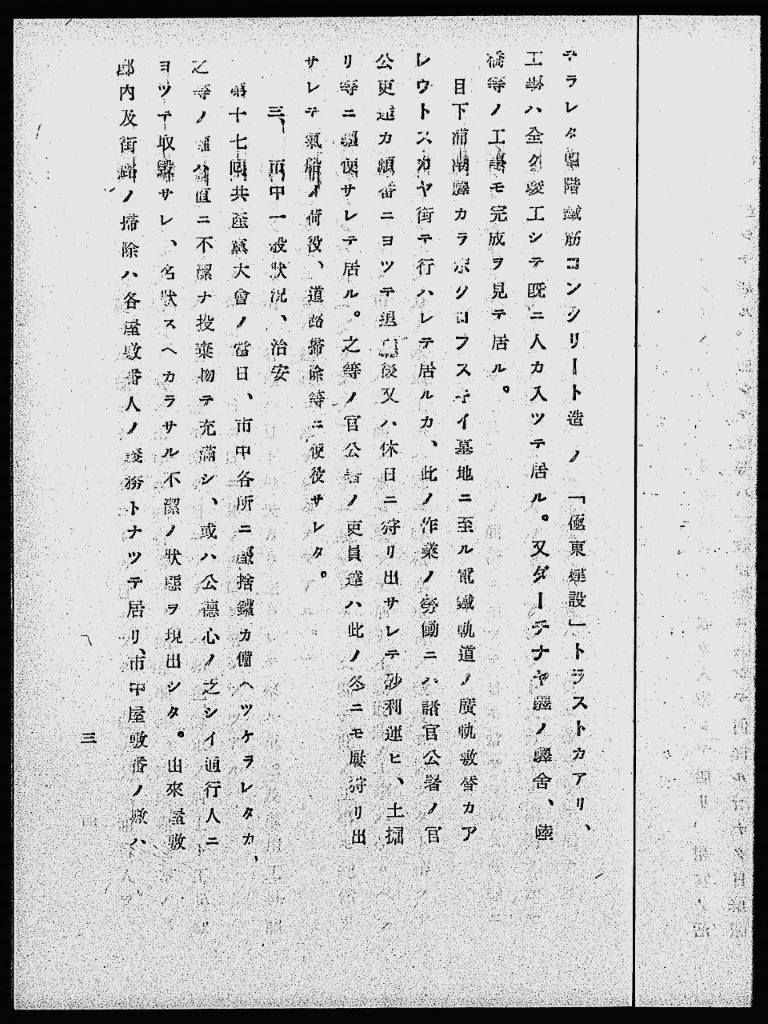 テラレタ 階鐵筋コンクリート造ノ「極東建設」トラストカアリ、
工事ハ全ク竣工シテ既ニ人カ入ツテ居ル。又ダーチナヤ驛ノ驛舎、陸
橋等ノ工事モ完成ヲ見テ居ル。
目下浦潮驛カラポクロフスキイ墓地ニ至ル電鐵軌道ノ廣軌敷替カア
レウトスカヤ街テ行ハレテ居ルカ、此ノ作業ノ勞働ニハ諸官公署ノ官
公吏達カ順番ニヨツテ退 後又ハ休日ニ狩リ出サレテ砂利運ヒ、土掘
リ等ニ驅使サレテ居ル。之等ノ官公署ノ吏員達ハ此ノ冬ニモ屢狩リ出
サレテ氣船ノ荷役、道路掃除等ニ使役サレタ。
三、市中一般狀況、治安
第十七回共産黨大會ノ當日、市中各所ニ塵捨鑵カ備ヘツケラレタカ、
之等ノ ハ直ニ不潔ナ投棄物テ充滿シ、或ハ公德心ノ乏シイ通行人ニ
ヨツテ取毀サレ、名狀スヘカラサル不潔ノ狀態ヲ現出シタ。由來屋敷
部内及街路ノ掃除ハ各屋敷番人ノ義務トナツテ居リ、市中屋敷番ノ數ハ
三